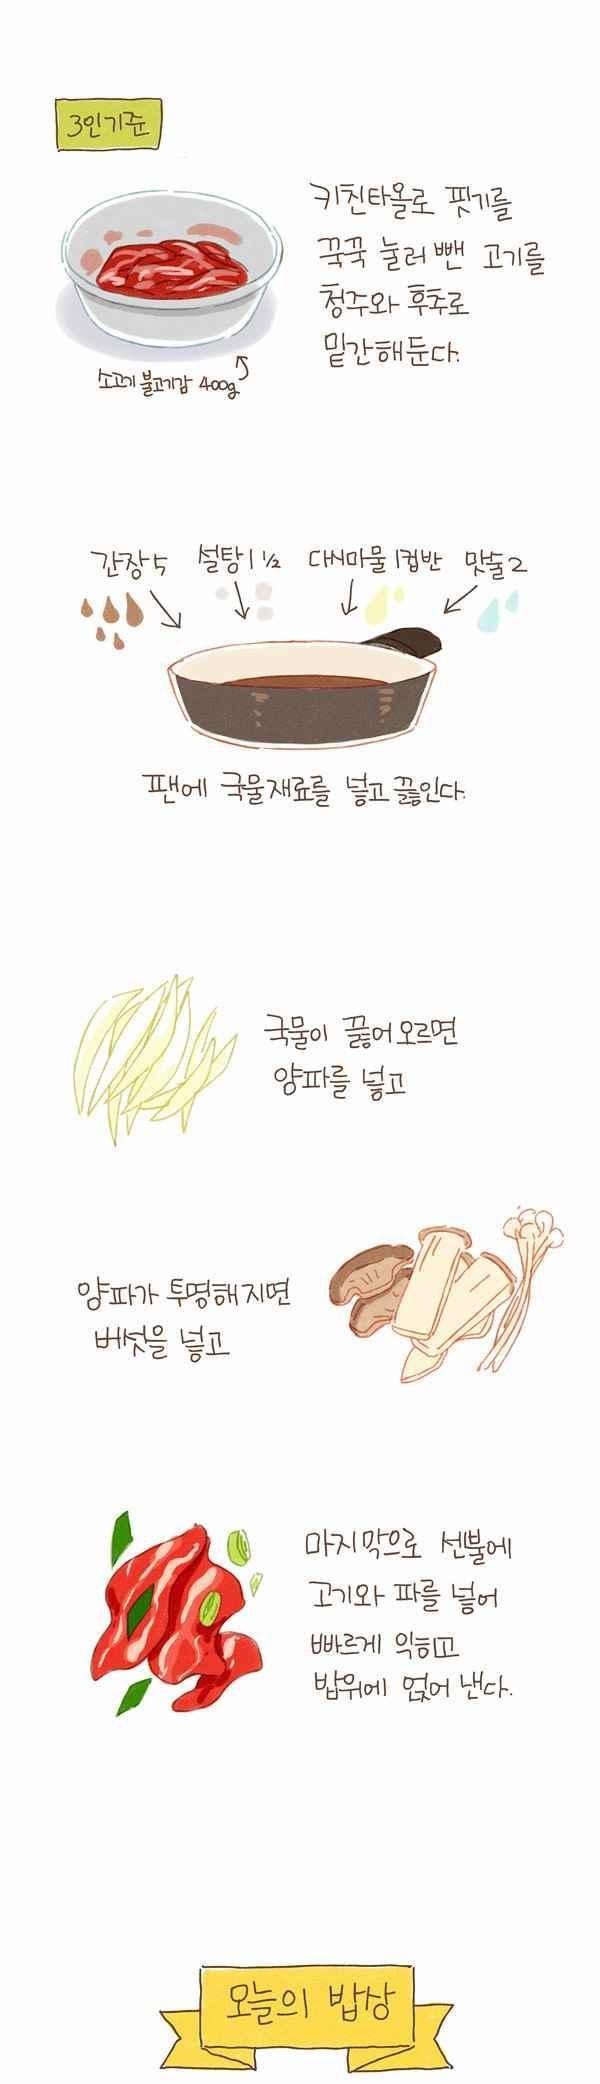 3인기준
키친타올로 핏기를
꾹꾹 눌러 뺀 고기를
청주와 후추로
밑간해둔다.
소고기 불고기감 400g
간장 5 설탕 1 ½ 다시마물 1컵반 맛술 2
팬에 국물재료를 넣고 끓인다.
국물이 끓어오르면
양파를 넣고
양파가 투명해지면
버섯을 넣고
마지막으로 센불에
고기와 파를 넣어
빠르게 익히고
밥위에 얹어 낸다.
오늘의 밥상